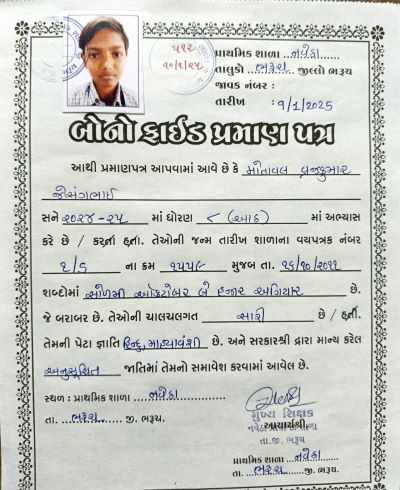 પ્રાથમિક શાળા : નવેઠા
તાલુકો ભરૂચ જીલ્લો ભરૂચ
જાવક નંબર :
૫૧૨
૧૦/૧/૨૫
તારીખ : ૧/૧/2025
બોનોફાઈડ પ્રમાણ પત્ર
આથી પ્રમાણપત્ર આપવામાં આવે છે કે વ્રજકુમાર
જેસંગભાઈ
સને ૨૦૨૪-૨૫ માં ધોરણ ૮ (આઠ) માં અભ્યાસ
કરે છે / કરતા હતા. તેઓની જન્મ તારીખ શાળાના વયપત્રક નંબર
૬/૬ ના ક્રમ ૧૫૫૯ મુજબ તા. ૧૬/૧૦/૨૦૧૧
શબ્દોમાં સોળમી ઓક્ટોબર બે હજાર અગિયાર છે.
જે બરાબર છે. તેઓની ચાલચલગત સારી છે / હતી.
તેમની પેટા જ્ઞાતિ હિન્દુ, માહ્યાવંશી છે. અને સરકારશ્રી દ્વારા માન્ય કરેલ
અનુસૂચિત જાતિમાં તેમનો સમાવેશ કરવામાં આવેલ છે.
સ્થળ : પ્રાથમિક શાળા નવેઠા
તા. ભરૂચ જી. ભરૂચ.
મુખ્ય શિક્ષક
આચાર્યશ્રી,
તા.જી. ભરૂચ
પ્રાથમિક શાળા નવેઠા
તા. ભરૂચ જી. ભરૂચ.